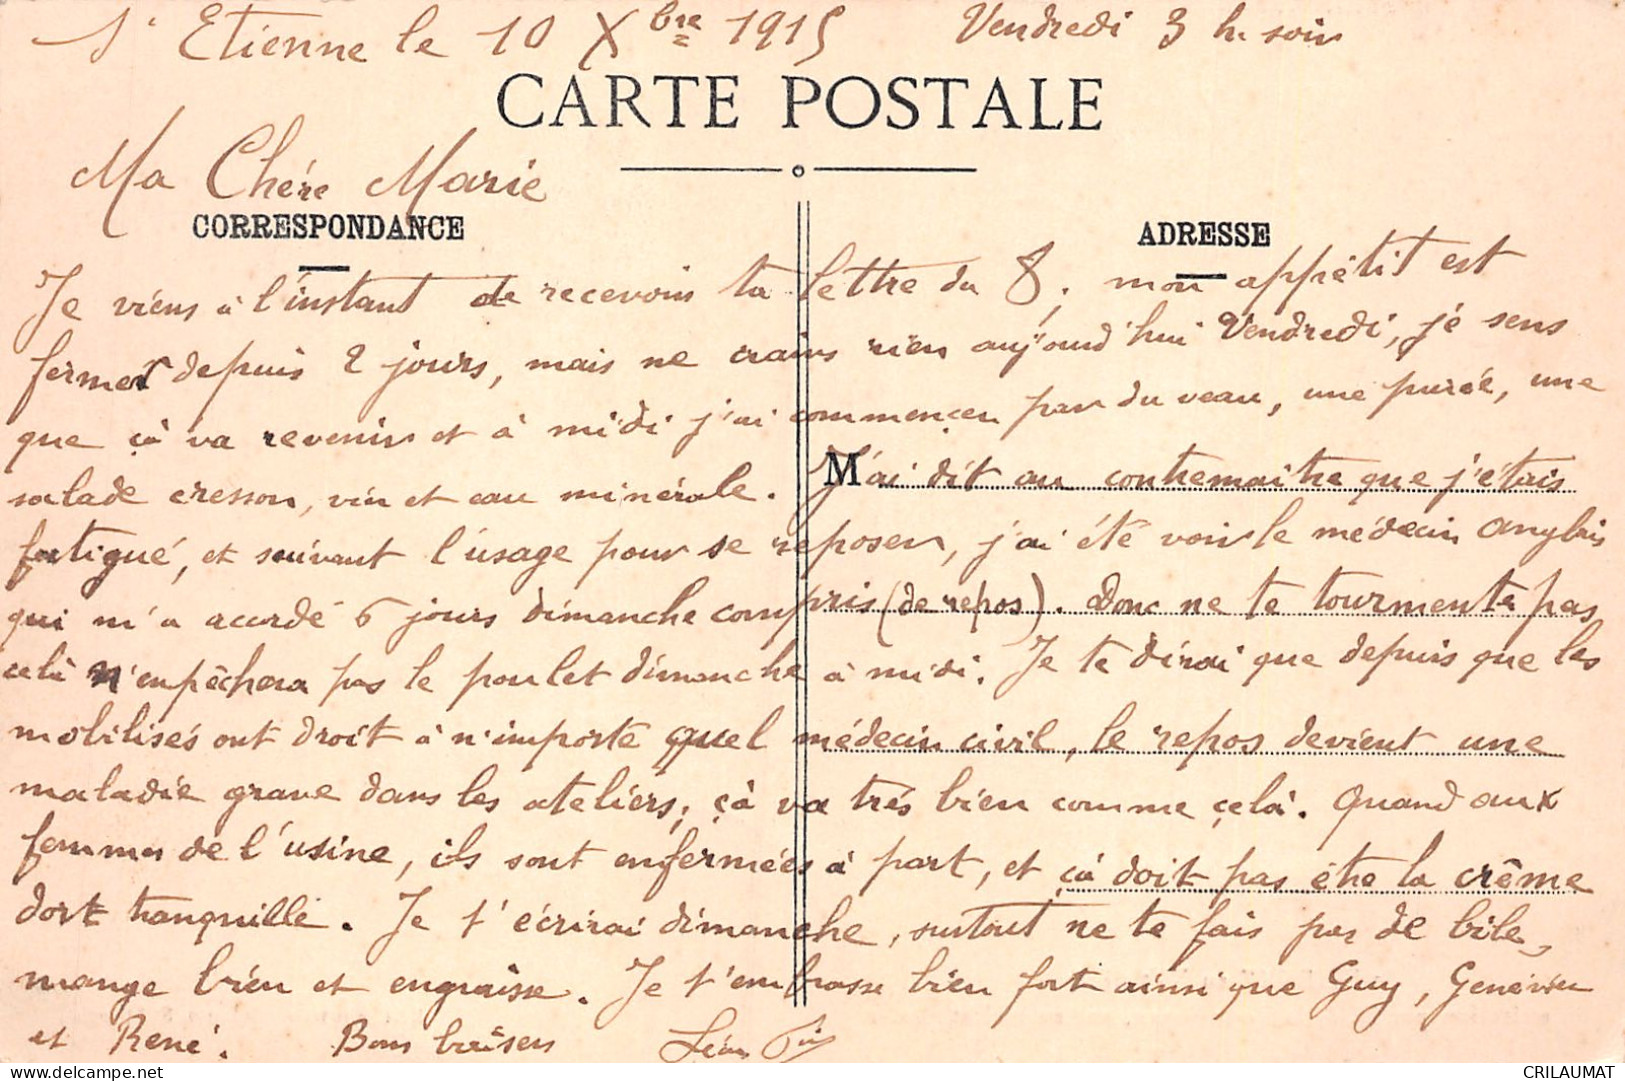 St Etienne le 10 Xbre 1915 Vendredi 3 h. soir
CARTE POSTALE
Ma Chére Marie
CORRESPONDANCE ADRESSE
Je viens à l'instant de recevoir ta lettre du 8, mon appétit est
fermer depuis 2 jours, mais ne crains rien aujourd'hui Vendredi, jé sens
que çà va revenir et à midi j'ai commençer par du veau, une purée, une
salade cresson, vin et eau minérale. M J'ai dit au contremaitre que j'étais
fatigué, et suivant l'usage pour se reposer, j'ai été voir le médecin anglais
qui m'a accordé 6 jours dimanche compris (de repos). Donc ne te tourmente pas
celà n'empêchera pas le poulet dimanche à midi. Je te dirai que depuis que les
mobilisés ont droit à n'importe quel médecin civil, le repos devient une
maladie grave dans les ateliers, çà va trés bien comme çelà. Quand aux
femmes de l'usine, ils sont enfermées à part, et çà doit pas être la crême
dort tranquille. Je t'écrirai dimanche, surtout ne te fais pas de bile,
mange bien et engraisse. Je t'embrasse bien fort ainsi que Guy, Geneviève
et René. Bons baisers Léon
CRILAUMAT